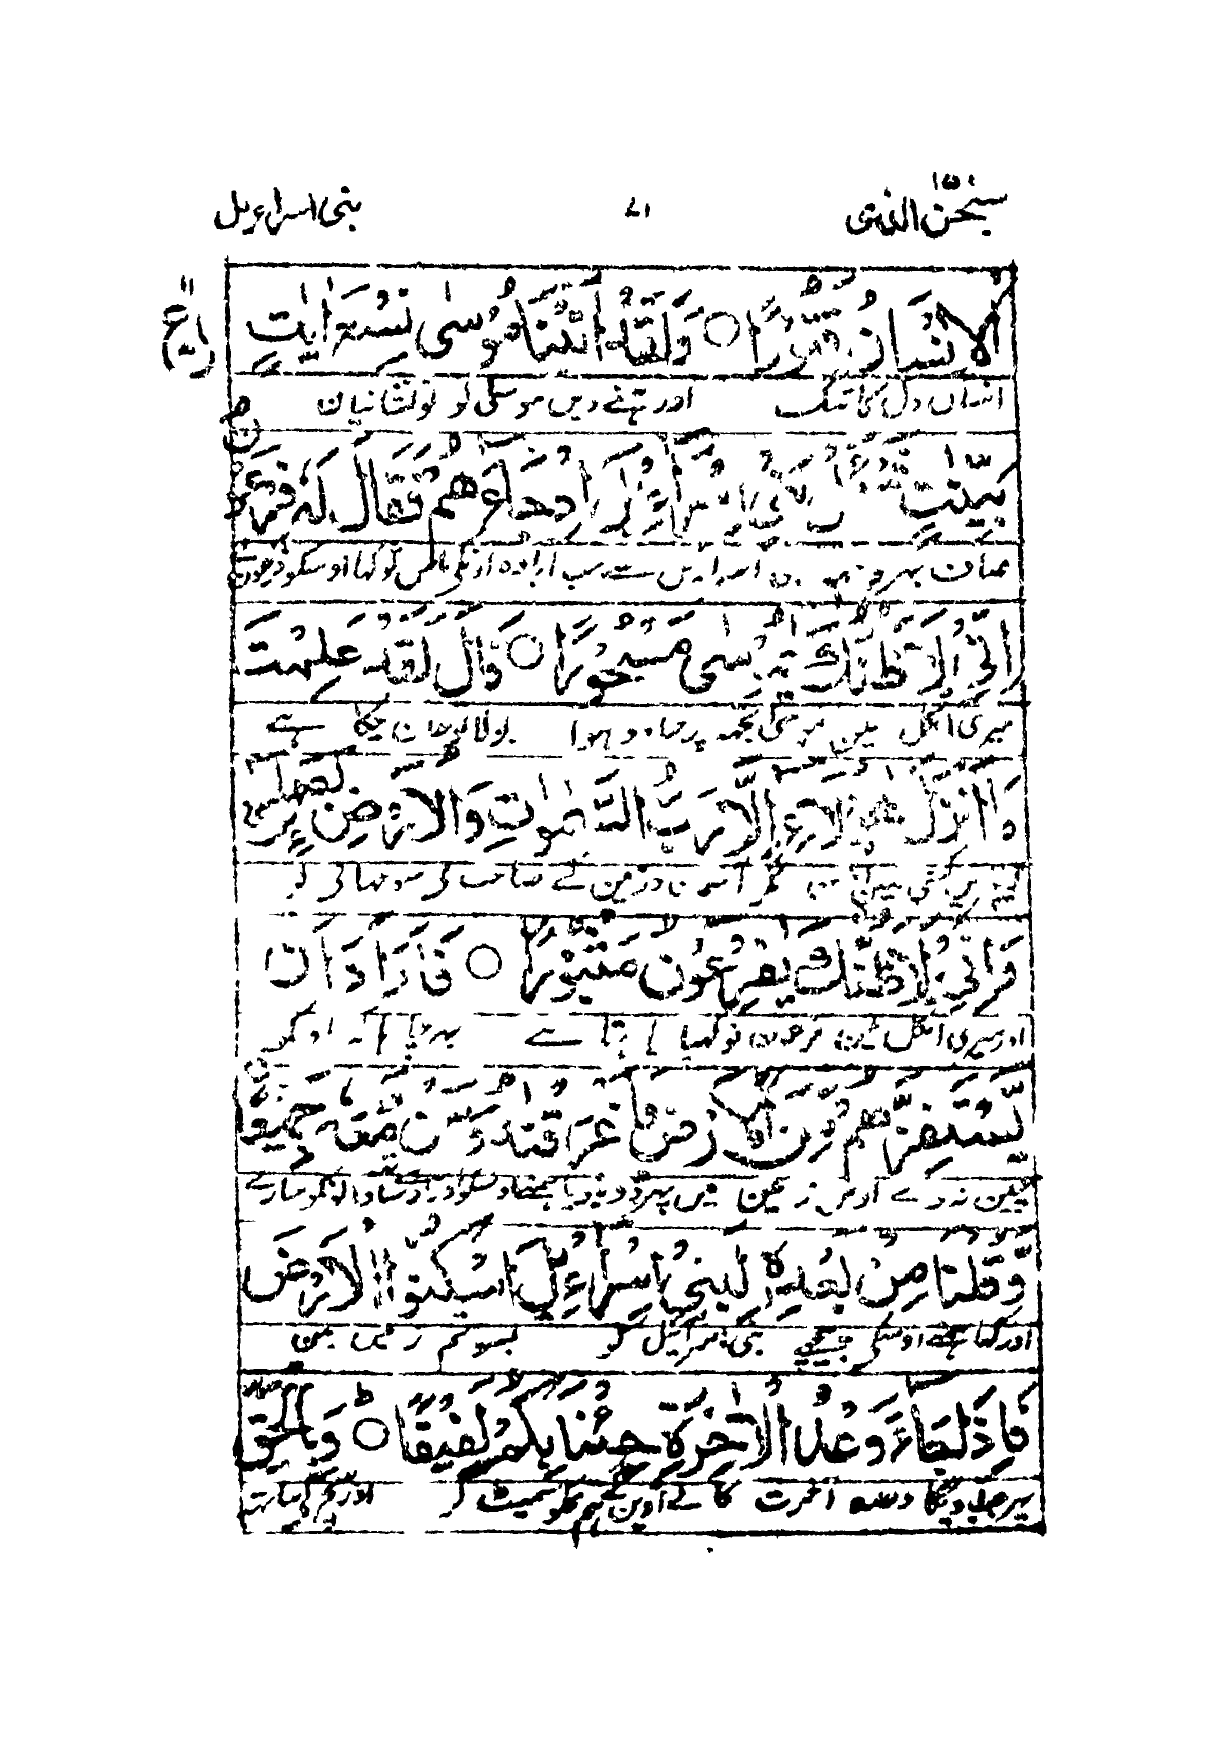 سبحن الذی ۱۵ ۷۱ بنی اسراءیل
الْاِنْسَانُ قَتُوْرًا ○ وَلَقَدْ اٰتَيْنَا مُوْسٰى تِسْعَ اٰيٰتٍ
انسان دل کا تنگ اور ہمنے دیں موسیٰ کو نو نشانیان
بَيِّنٰتٍ فَسْـَٔلْ بَنِيْٓ اِسْرَآءِيْلَ اِذْ جَآءَهُمْ فَقَالَ لَهٗ فِرْعَوْنُ
صاف پھر پوچھ اسرائیل سے جب آیا وہ اونکی پاس تو کہا اوسکو فرعون
اِنِّيْ لَاَظُنُّكَ يٰمُوْسٰى مَسْحُوْرًا ○ قَالَ لَقَدْ عَلِمْتَ
میری اٹکل مین موسیٰ تجھہ پر جادو ہوا بولا تو جان چکا ہے
مَآ اَنْزَلَ هٰٓؤُلَآءِ اِلَّا رَبُّ السَّمٰوٰتِ وَالْاَرْضِ بَصَآئِرَ
مگر آسمان و زمین کے صاحب نے سوجھانے کو
وَاِنِّيْ لَاَظُنُّكَ يٰفِرْعَوْنُ مَثْبُوْرًا ○ فَاَرَادَ اَنْ
اور میری اٹکل مین فرعون تو کھپا چاہتا ہے پھر چاہا کہ اونکو
يَّسْتَفِزَّهُمْ مِّنَ الْاَرْضِ فَاَغْرَقْنٰهُ وَمَنْ مَّعَهٗ جَمِيْعًا
چین نہ دے اوس زمین میں پھر ڈوبا دیا ہمنے اوسکو اور اوسکے ساتھ والونکو سارے
وَّقُلْنَا مِنْۢ بَعْدِهٖ لِبَنِيْٓ اِسْرَآءِيْلَ اسْكُنُوا الْاَرْضَ
اور کہا ہمنے اوسکی پیچھے بنی اسرائیل کو بسو تم زمین مین
فَاِذَا جَآءَ وَعْدُ الْاٰخِرَةِ جِئْنَا بِكُمْ لَفِيْفًا ○ وَبِالْحَقِّ
پھر جب آویگا وعدہ آخرت کا لے آوین گے ہم تمکو سمیٹ کر اور